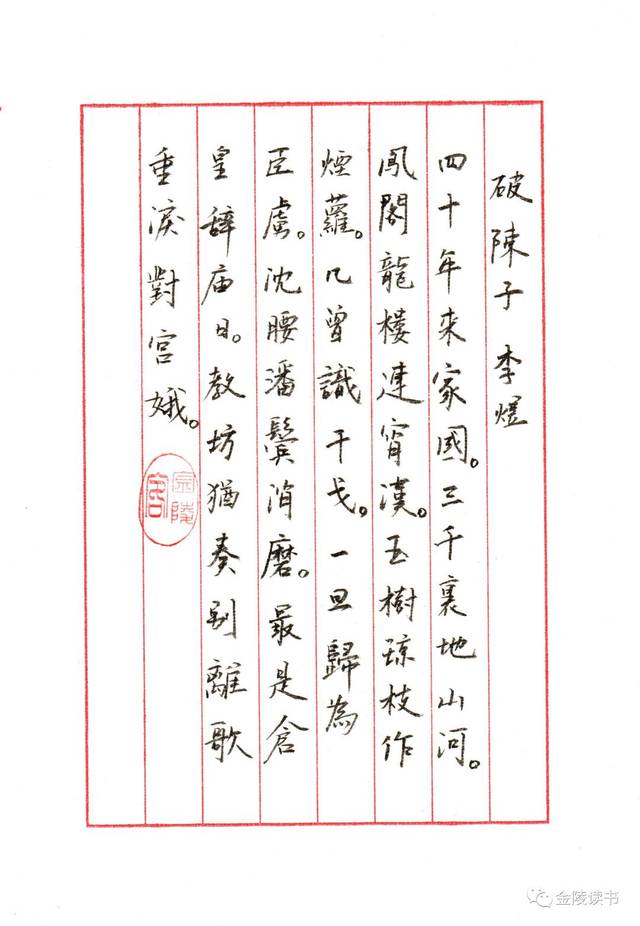 破陳子 李煜
四十年来家國。三千裏地山河。
鳳閣龍樓連霄漢。玉樹瓊枝作
煙蘿。几曾識干戈。一旦歸為
臣虜。沈腰潘鬢消磨。最是倉
皇辞庙日。教坊猶奏别離歌
垂淚對宮娥。
金陵读书